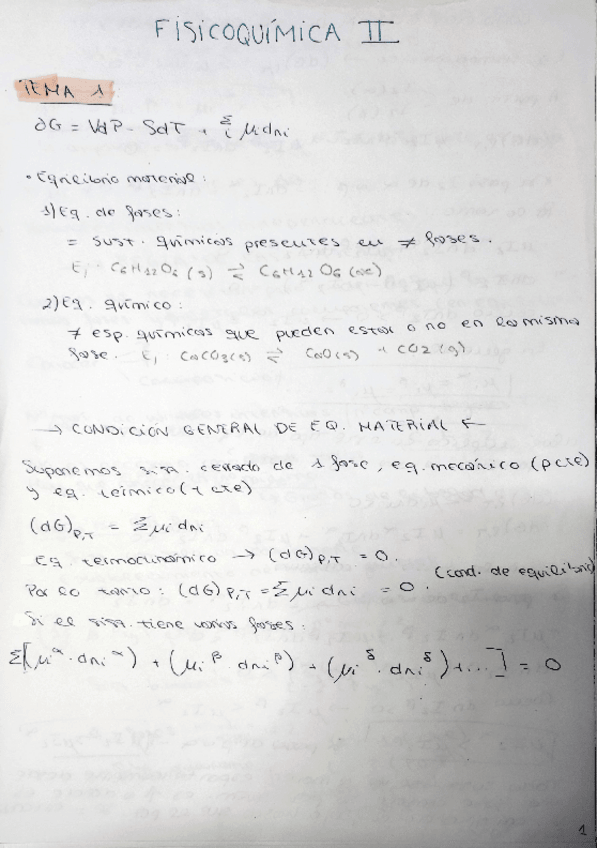 FÍSICOQUÍMICA II
TEMA 1
∂G = VdP - SdT + Σi μi dni
• Equilibrio material:
1) Eq. de fases:
= sust. químicas presentes en ≠ fases.
Ej. C6H12O6 (s) ⇌ C6H12O6 (ac)
2) Eq. químico:
≠ esp. químicas que pueden estar o no en la misma
fase. Ej. CaCO3(s) ⇌ CaO(s) + CO2(g)
→ CONDICIÓN GENERAL DE EQ. MATERIAL ←
Suponemos sist. cerrado de 1 fase, eq. mecánico (p cte)
y eq. térmico (t cte)
(dG)P,T = Σ μi dni
Eq. termodinámico → (dG)P,T = 0.
(cond. de equilibrio)
Por lo tanto: (dG)P,T = Σ μi dni = 0.
Si el sist. tiene varias fases:
Σ[(μi^α · dni^α) + (μi^β · dni^β) + (μi^δ · dni^δ) + ...] = 0
1